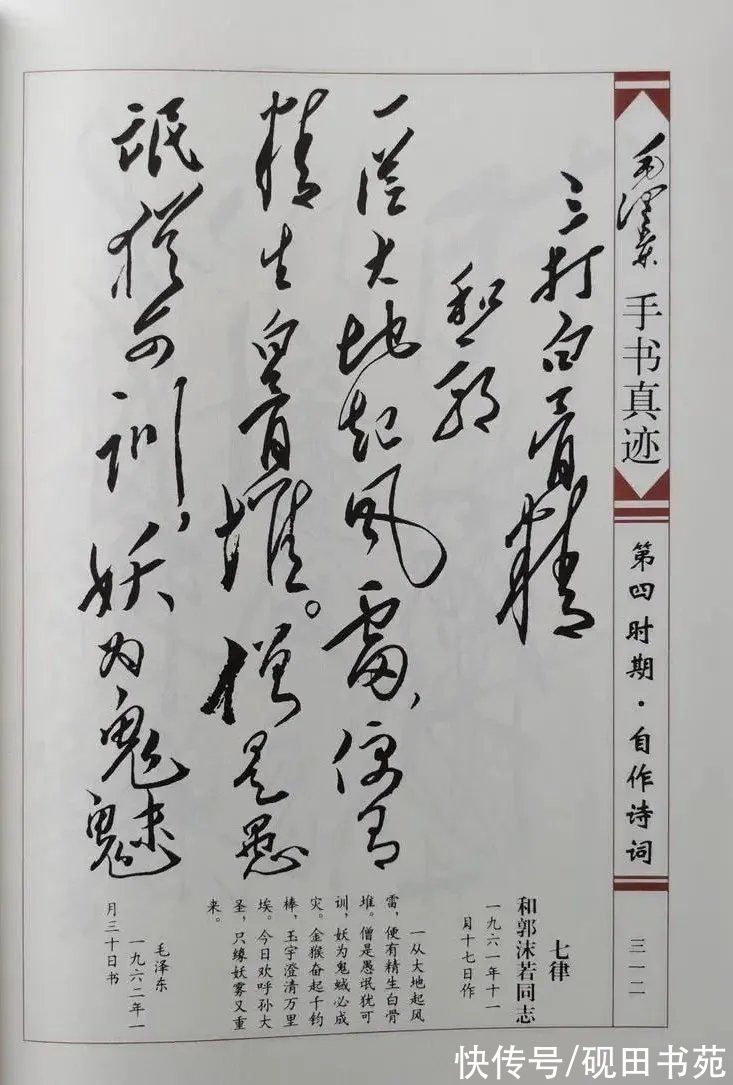 毛泽东 手书真迹
第四时期·自作诗词
三一二
三打白骨精
和郭
一从大地起风雷,便有
精生白骨堆。僧是愚
氓犹可训,妖为鬼魅
七律
和郭沫若同志
一九六一年十一
月十七日作
一从大地起风
雷,便有精生白骨
堆。僧是愚氓犹可
训,妖为鬼蜮必成
灾。金猴奋起千钧
棒,玉宇澄清万里
埃。今日欢呼孙大
圣,只缘妖雾又重
来。
毛泽东
一九六二年一
月三十日书
快传号/砚田书苑